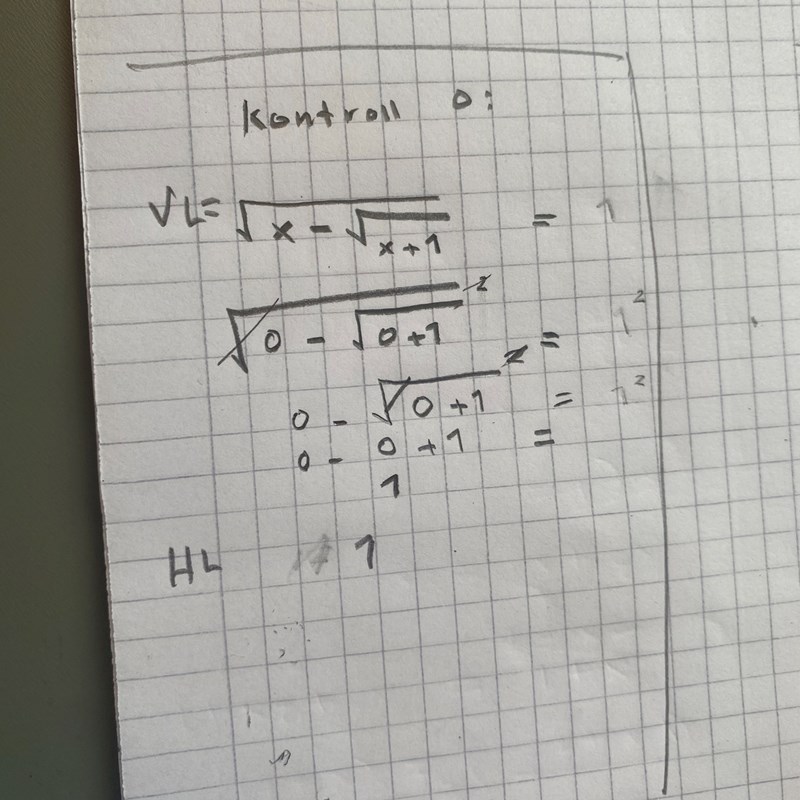 Kontroll 0:
VL= √(x - √(x+1)) = 1
√(0 - √(0+1))² = 1²
0 - √(0+1)² = 1²
0 - 0 + 1 =
1
HL 1